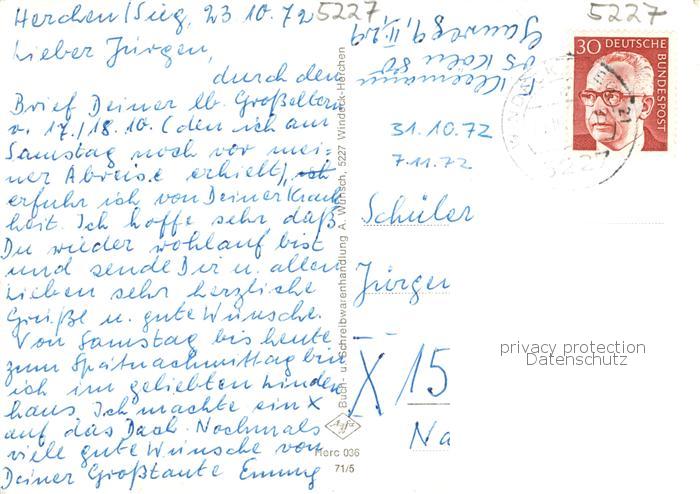 Herchen/Sieg, 23 10.72
Lieber Jürgen,
durch den
Brief Deiner lb. Großeltern
v. 17./18.10. (den ich am
Samstag noch vor mei=
ner Abreise erhielt),
erfuhr ich von Deiner Krank
heit. Ich hoffe sehr daß
Du wieder wohlauf bist
und sende Dir u. allen
Lieben sehr herzliche
Grüße u. gute Wünsche.
Von Samstag bis heute
zum Spätnachmittag bin
ich im geliebten Linden
haus. Ich machte ein X
auf das Dach. Nochmals
viele gute Wünsche von
Deiner Großtante Emmy
5227
Buch- u. Schreibwarenhandlung A. Wünsch, 5227 Windeck-Herchen
Agfa
Herc 036
71/5
F. Kleemann
D5 Köln 80
31.10.72
7.11.72
5227
30 DEUTSCHE
BUNDESPOST
5227
Schüler
Jürgen
X 15
Na
privacy protection
Datenschutz